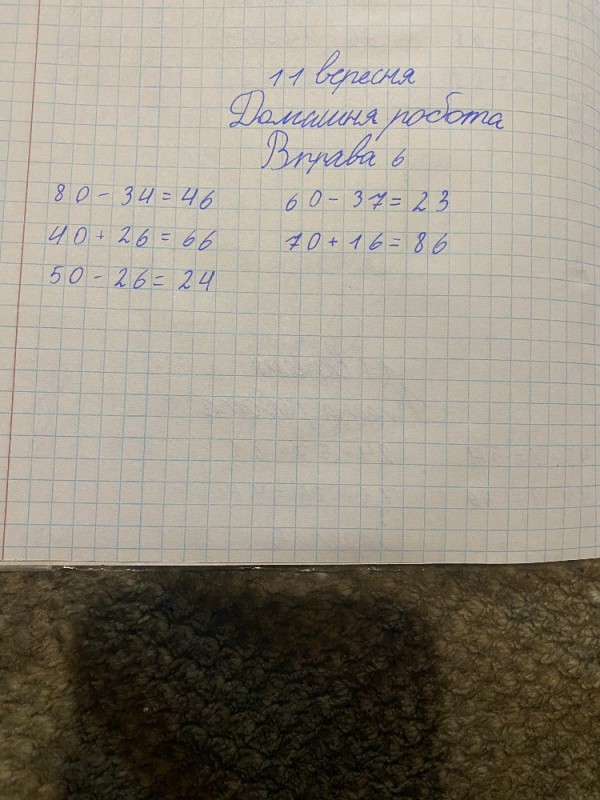 11 вересня
Домашня робота
Вправа 6
80 - 34 = 46 60 - 37 = 23
40 + 26 = 66 70 + 16 = 86
50 - 26 = 24